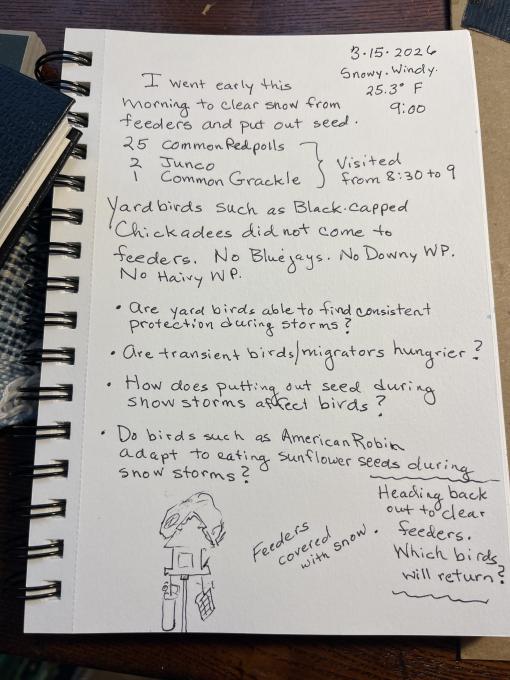 3-15-2026
Snowy. Windy.
25.3° F
9:00
I went early this
morning to clear snow from
feeders and put out seed.
25 Common Redpolls
2 Junco
1 Common Grackle
Visited
from 8:30 to 9
Yardbirds such as Black-capped
Chickadees did not come to
feeders. No Bluejays. No Downy WP.
No Hairy WP.
• Are yard birds able to find consistent
protection during storms?
• Are transient birds/migrators hungrier?
• How does putting out seed during
snow storms affect birds?
• Do birds such as American Robin
adapt to eating sunflower seeds during
snow storms?
Feeders
covered
with snow.
Heading back
out to clear
feeders.
Which birds
will return?